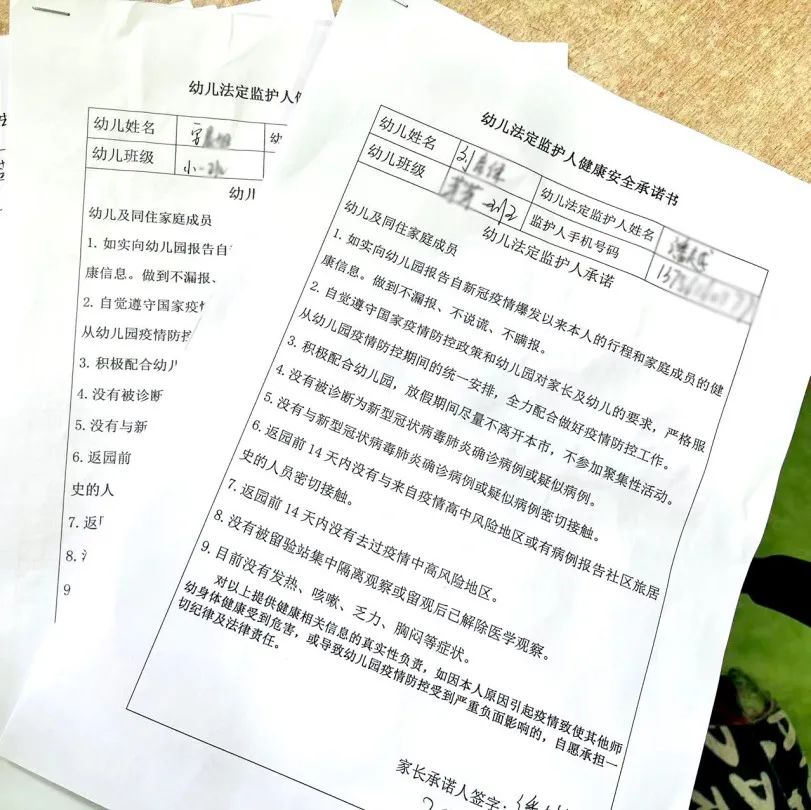 幼儿法定监护人健康安全承诺书
幼儿姓名 刘 幼儿法定监护人姓名
幼儿班级 监护人手机号码
幼儿法定监护人承诺
幼儿及同住家庭成员
1. 如实向幼儿园报告自新冠疫情爆发以来本人的行程和家庭成员的健
康信息。做到不漏报、不说谎、不瞒报。
2. 自觉遵守国家疫情防控政策和幼儿园对家长及幼儿的要求，严格服
从幼儿园疫情防控期间的统一安排，全力配合做好疫情防控工作。
3. 积极配合幼儿园，放假期间尽量不离开本市，不参加聚集性活动。
4. 没有被诊断为新型冠状病毒肺炎确诊病例或疑似病例。
5. 没有与新型冠状病毒肺炎确诊病例或疑似病例密切接触。
6. 返园前 14 天内没有与来自疫情高中风险地区或有病例报告社区旅居
史的人员密切接触。
7. 返园前 14 天内没有去过疫情中高风险地区。
8. 没有被留验站集中隔离观察或留观后已解除医学观察。
9. 目前没有发热、咳嗽、乏力、胸闷等症状。
对以上提供健康相关信息的真实性负责，如因本人原因引起疫情致使其他师
幼身体健康受到危害，或导致幼儿园疫情防控受到严重负面影响的，自愿承担一
切纪律及法律责任。
家长承诺人签字：
幼儿法定监护人
幼儿姓名
幼儿班级 小一班
幼儿及同住家庭成员
1. 如实向幼儿园报告自
康信息。做到不漏报、
2. 自觉遵守国家疫
从幼儿园疫情防控
3. 积极配合幼
4. 没有被诊断
5. 没有与新
6. 返园前
史的人
7. 返
8.
9